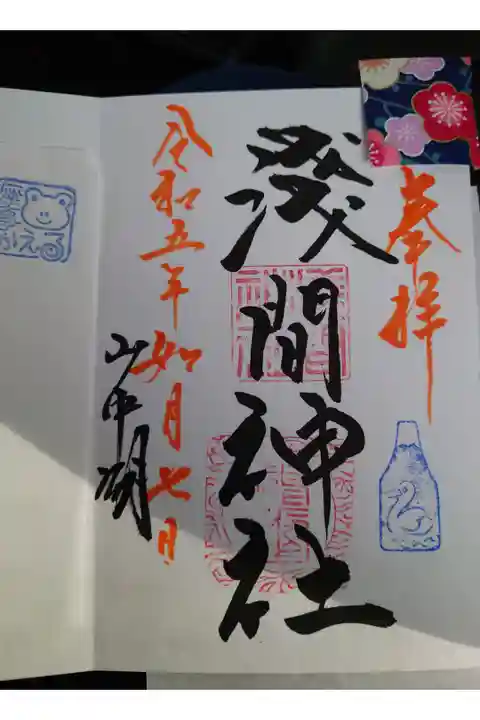 奉拝
淺間神社
令和五年如月七日
山中湖
かえる